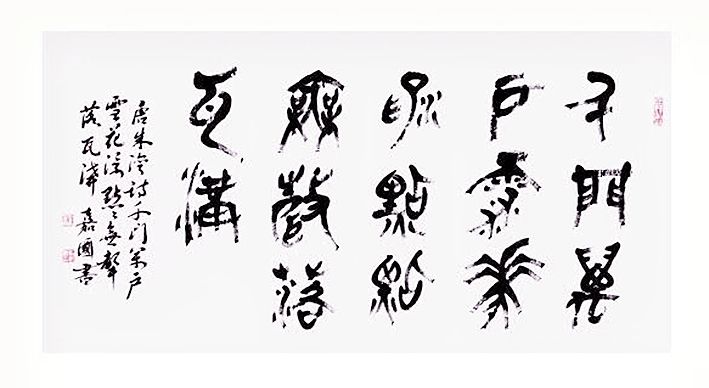 千門萬
戶雪花
浮點點
無聲落
瓦溝
唐朱灣詩千门萬户
雪花浮點點無聲
落瓦溝 嘉國書